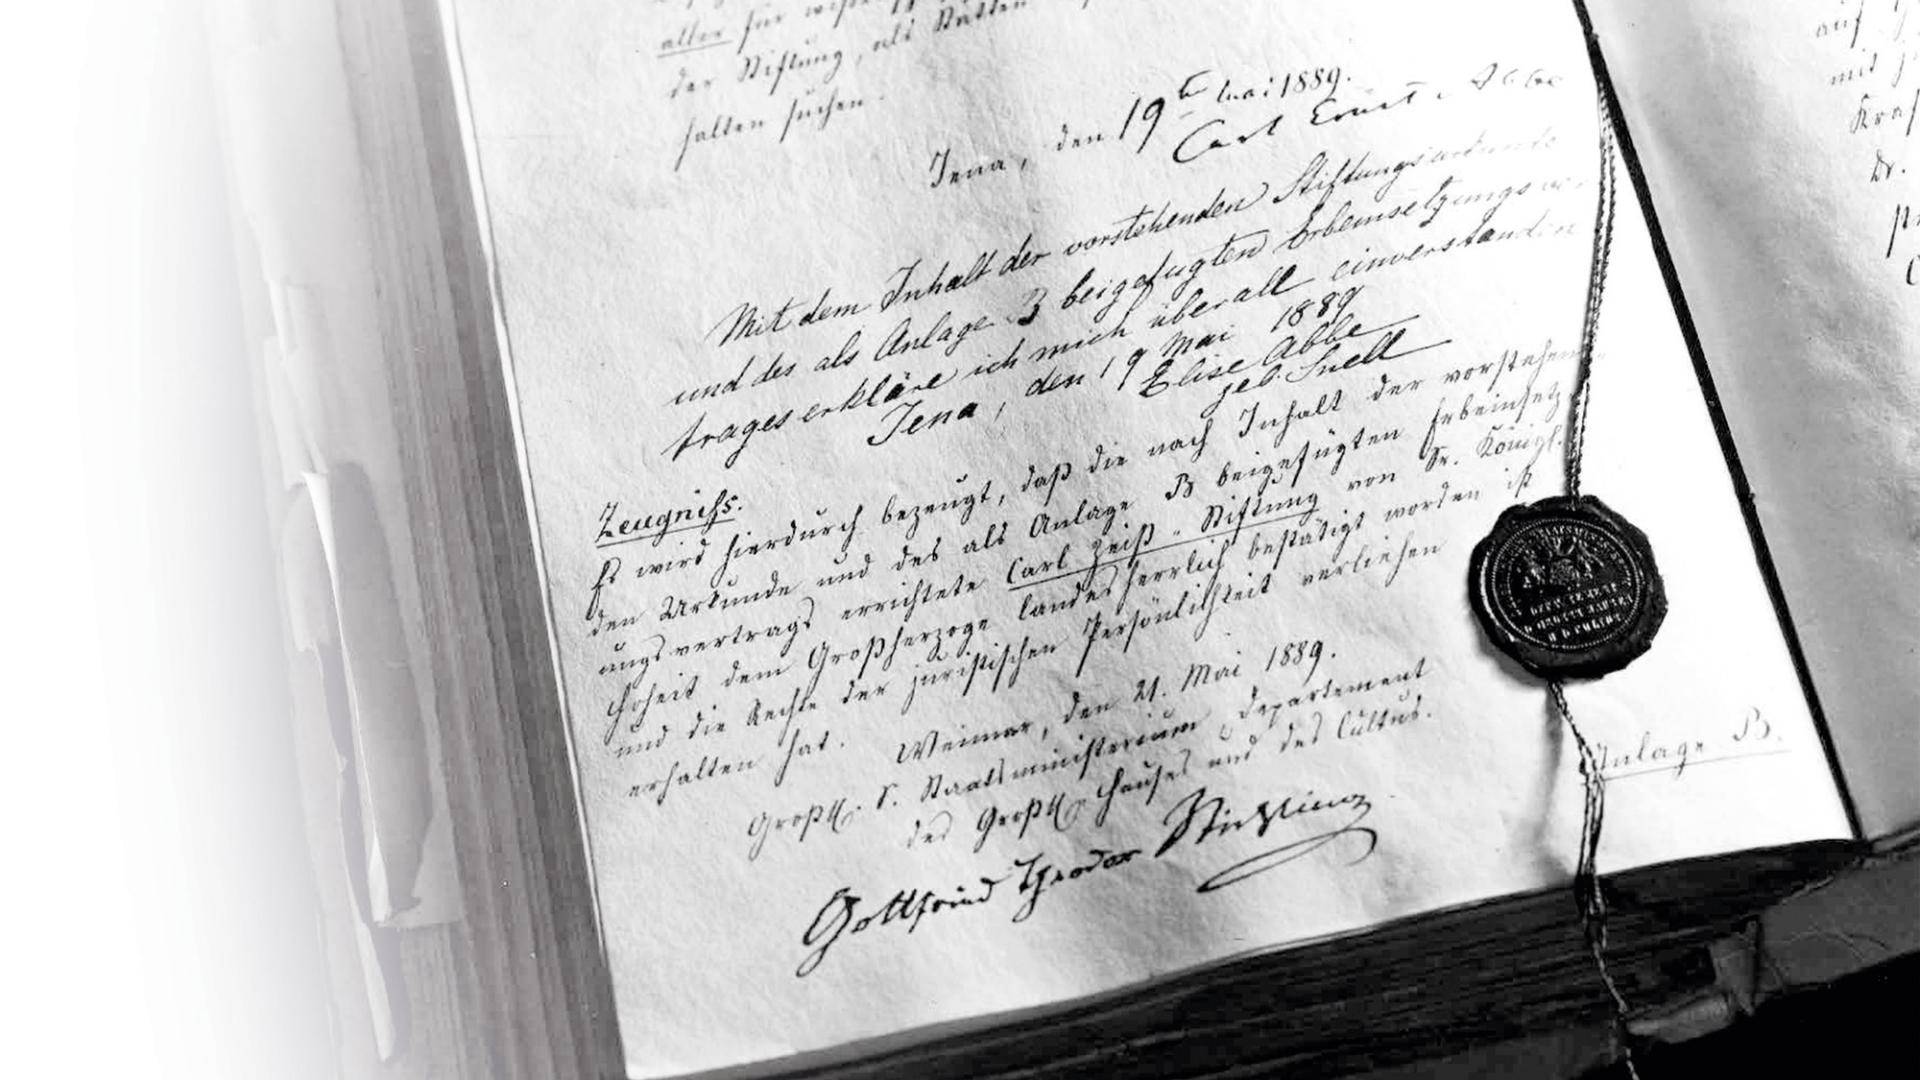 aller für
der Stiftung, als Statten
halten suchen.
Jena, den 19ten Mai 1889.
Carl Ernst Abbe
Mit dem Inhalt der vorstehenden Stiftungsurkunde
und des als Anlage B beigefügten Erbeinsetzungsver-
trages erkläre ich mich überall einverstanden
Jena, den 19 Mai 1889
Elise Abbe
geb. Snell
Zeugniß.
Es wird hierdurch bezeugt, daß die nach Inhalt der vorstehen-
den Urkunde und des als Anlage B beigefügten Erbeinsetz-
ungsvertrags errichtete Carl Zeiß-Stiftung von Sr. Königl.
Hoheit dem Großherzoge landesherrlich bestätigt worden ist
und die Rechte der juristischen Persönlichkeit verliehen
erhalten hat.
Weimar, den 21. Mai 1889.
Großh. S. Staatsministerium, Departement
des Großh. Hauses und des Cultus.
Gottfried Theodor Stichling
Anlage B.
auf
mit
Kraf
Dr.